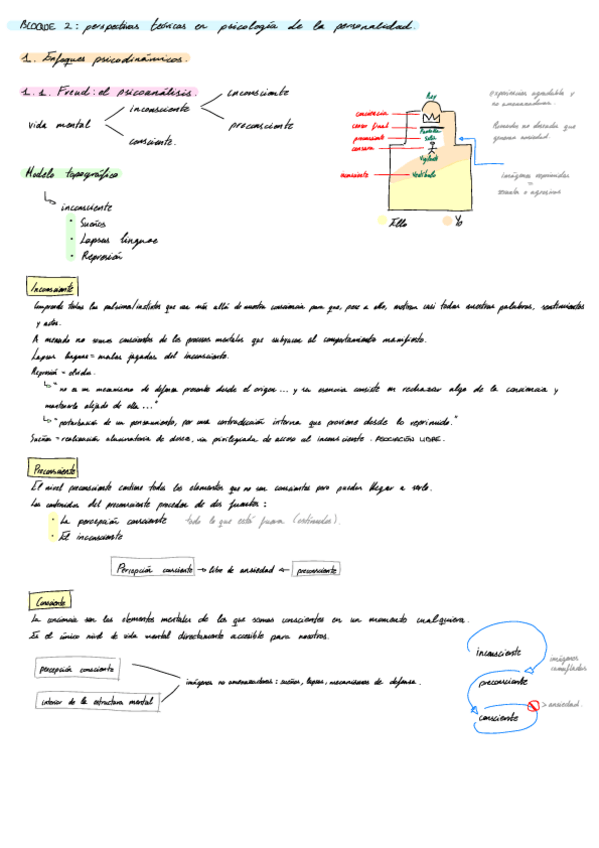 BLOQUE 2: perspectivas teóricas en psicología de la personalidad.
1. Enfoques psicodinámicos.
1.1. Freud: el psicoanálisis.
vida mental
inconsciente
consciente.
inconsciente
preconsciente
Rey
conciencia
censor final
Pantalla
preconsciente
Sala
censura
Vigilante
inconsciente
Vestíbulo
Ello
Yo
experiencias agradables y
no amenazadoras.
Recuerdos no deseados que
generan ansiedad.
imágenes reprimidas
=
sexuales o agresivas
Modelo topográfico
inconsciente
• Sueños
• Lapsus linguae
• Represión
Inconsciente
Comprende todas las pulsiones/instintos que van más allá de nuestra consciencia pero que, pese a ello, motivan casi todas nuestras palabras, sentimientos
y actos.
A menudo no somos conscientes de los procesos mentales que subyacen al comportamiento manifiesto.
Lapsus linguae = malas jugadas del inconsciente.
Represión = olvidar.
"no es un mecanismo de defensa presente desde el origen ... y su esencia consiste en rechazar algo de la conciencia y
mantenerlo alejado de ella ..."
"perturbación de un pensamiento, por una contradicción interna que proviene desde lo reprimido."
Sueños = realización alucinatoria de deseos, vía privilegiada de acceso al inconsciente. ASOCIACIÓN LIBRE.
Preconsciente
El nivel preconsciente contiene todos los elementos que no son conscientes pero pueden llegar a serlo.
Los contenidos del preconsciente proceden de dos fuentes:
• La percepción consciente todo lo que está fuera (estímulos).
• El inconsciente
Percepción consciente → libre de ansiedad ← preconsciente
Consciente
La conciencia son los elementos mentales de los que somos conscientes en un momento cualquiera.
Es el único nivel de vida mental directamente accesible para nosotros.
percepción consciente
interior de la estructura mental
imágenes no amenazadoras: sueños, lapsus, mecanismos de defensa.
inconsciente
imágenes
camufladas
preconsciente
> ansiedad.
consciente